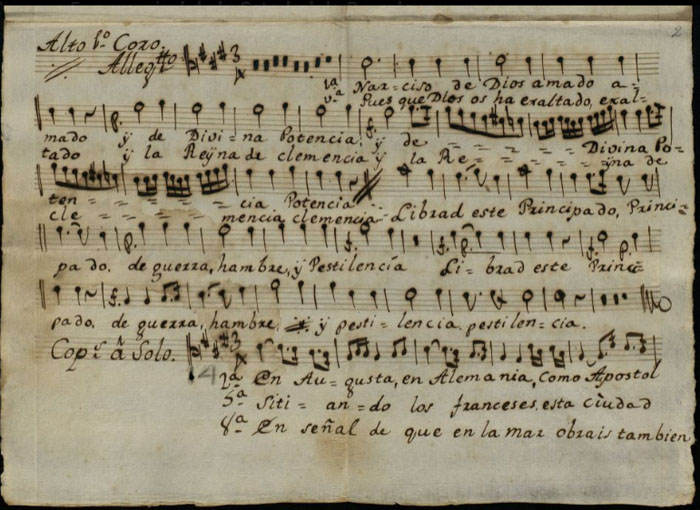 2
Alto 1.º Coro.
Alleg.tto
3
1.ª Nar=ciso de Dios amado a=
v.ª Pues que Dios os ha exaltado, exal=
mado ÿ de Divi=na Potencia, ÿ de Divina Po=
tado ÿ la Reÿna de clemencia ÿ la Re= ÿna de
ten= cia Potencia
cle= mencia clemencia Librad este Principado, Princi=
pado, de guerra, hambre, ÿ Pestilencia Li=brad este Princi
pado, de guerra, hambre, ÿ pesti=lencia, pestilen=cia.
Cop.s â Solo.
3
4
2.ª En Au=gusta, en Alemania, Como Apostol
5.ª Siti=an=do los franceses, esta ciudad
8.ª En señal de que en la mar obrais tambien